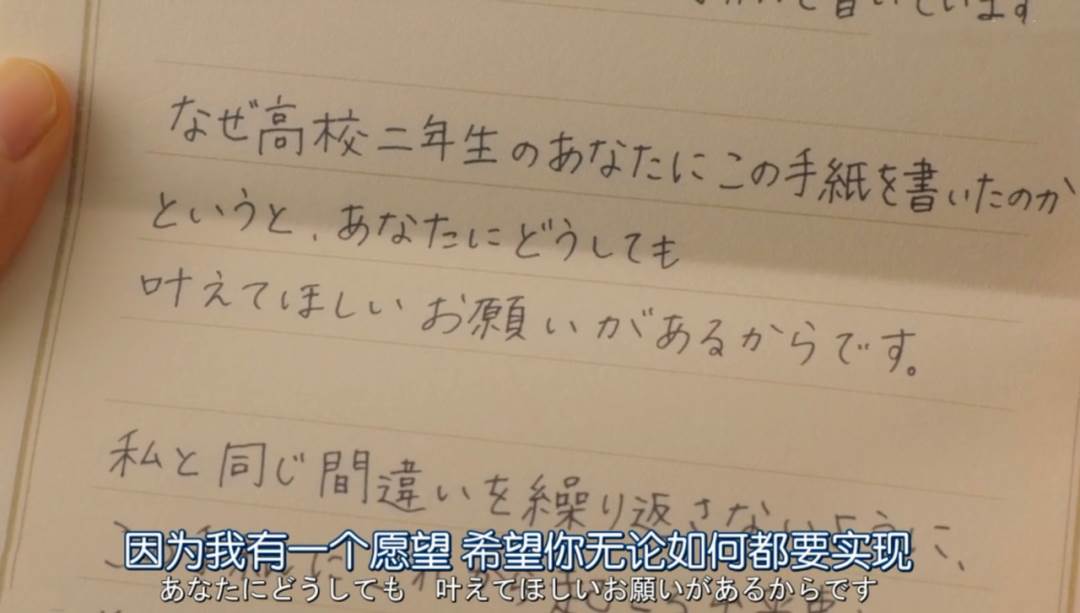 書いています
なぜ高校二年生のあなたにこの手紙を書いたのか
というと、あなたにどうしても
叶えてほしいお願いがあるからです。
私と同じ間違いを繰り返さないように、
因为我有一个愿望 希望你无论如何都要实现
あなたにどうしても 叶えてほしいお願いがあるからです